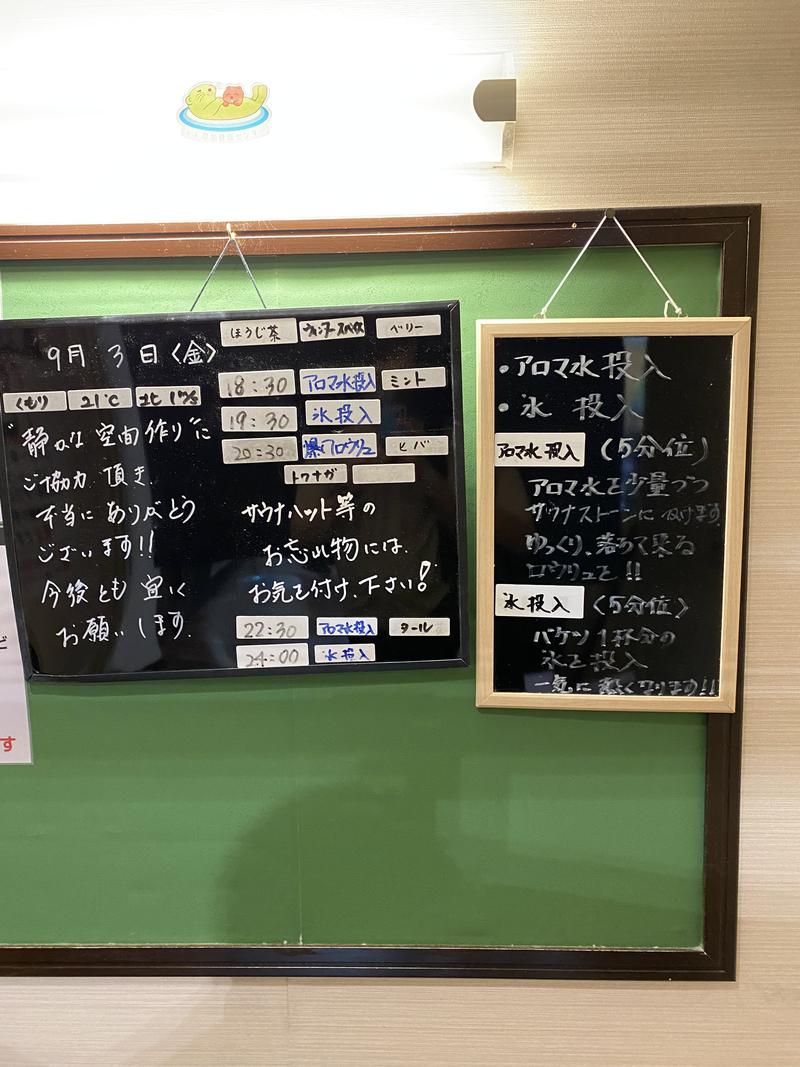 9月 3日〈金〉
くもり 21℃
"静かな空間作り"に
ご協力 頂き、
本当に ありがとう
ございます!!
今後とも 宜しく
お願いします。
ほうじ茶 ウィンタースペイス ベリー
18:30 アロマ水投入 ミント
19:30 氷投入
20:30 爆アロウリュ ヒバ
トウナガ
サウナハット等の
お忘れ物には、
お気を付け、下さい!
22:30 アロマ水投入 タール
24:00 氷投入
・アロマ水投入
・氷 投入
アロマ水投入 (5分位)
アロマ水を少量づつ
サウナストーンにかけます。
ゆっくり、落ちて来る
ロウリュを!!
氷投入 〈5分位〉
バケツ1杯分の
氷を投入
一気に熱くなります!!
ど
す